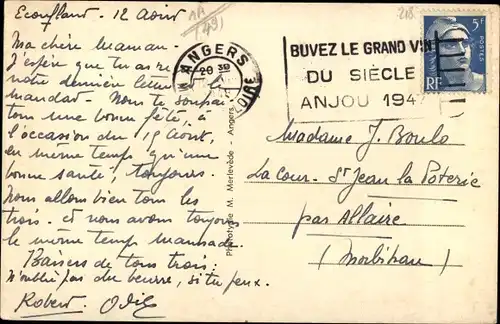 Ecouflant - 12 Août
Ma chère Maman -
J'espère que tu as reçu
notre dernière lettre
mandat - Nous te souhai-
tons une bonne fête, à
l'occasion du 15 Août,
en même temps qu'une
bonne santé, toujours.
Nous allons bien tous les
trois. et nous avons toujours
le même temps maussade.
Baisers de tous trois.
N'oublie pas du beurre, si tu peux.
Robert Odile
(49)
ANGERS
20 30
LOIRE
Phototypie M. Merlevède - Angers
218
BUVEZ LE GRAND VIN
DU SIÈCLE
ANJOU 1947
5F
POSTES
RF
Madame J. Boulo
La Cour - St Jean la Poterie
par Allaire
(Morbihan)